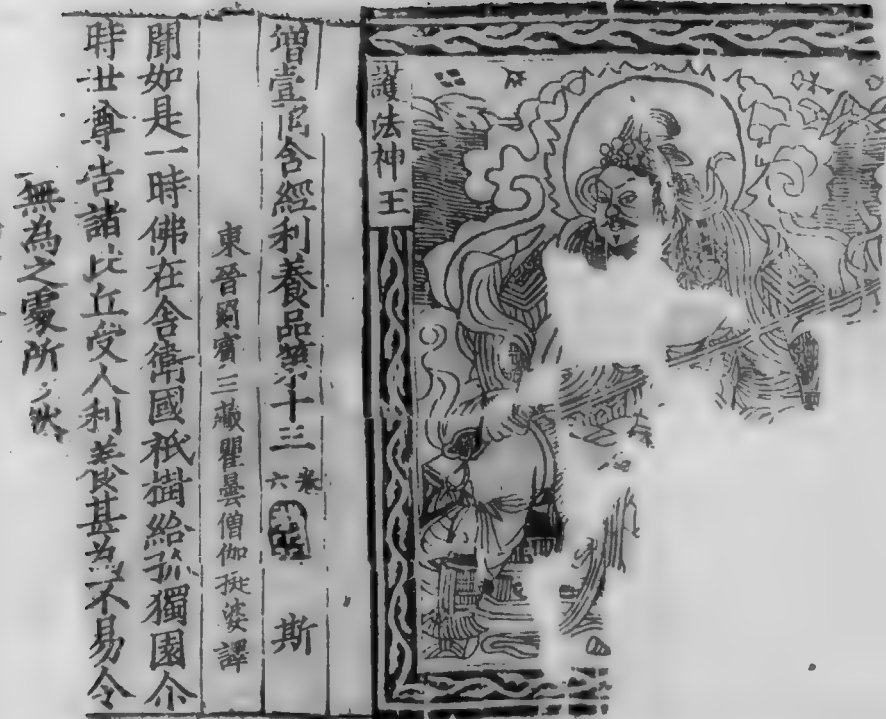 護法神王
增壹阿含經利養品第十三 卷六 斯
東晉罽賓三藏瞿曇僧伽提婆譯
聞如是一時佛在舍衛國祇樹給孤獨園尒
時世尊告諸比丘受人利養甚為不易令
無為之處所